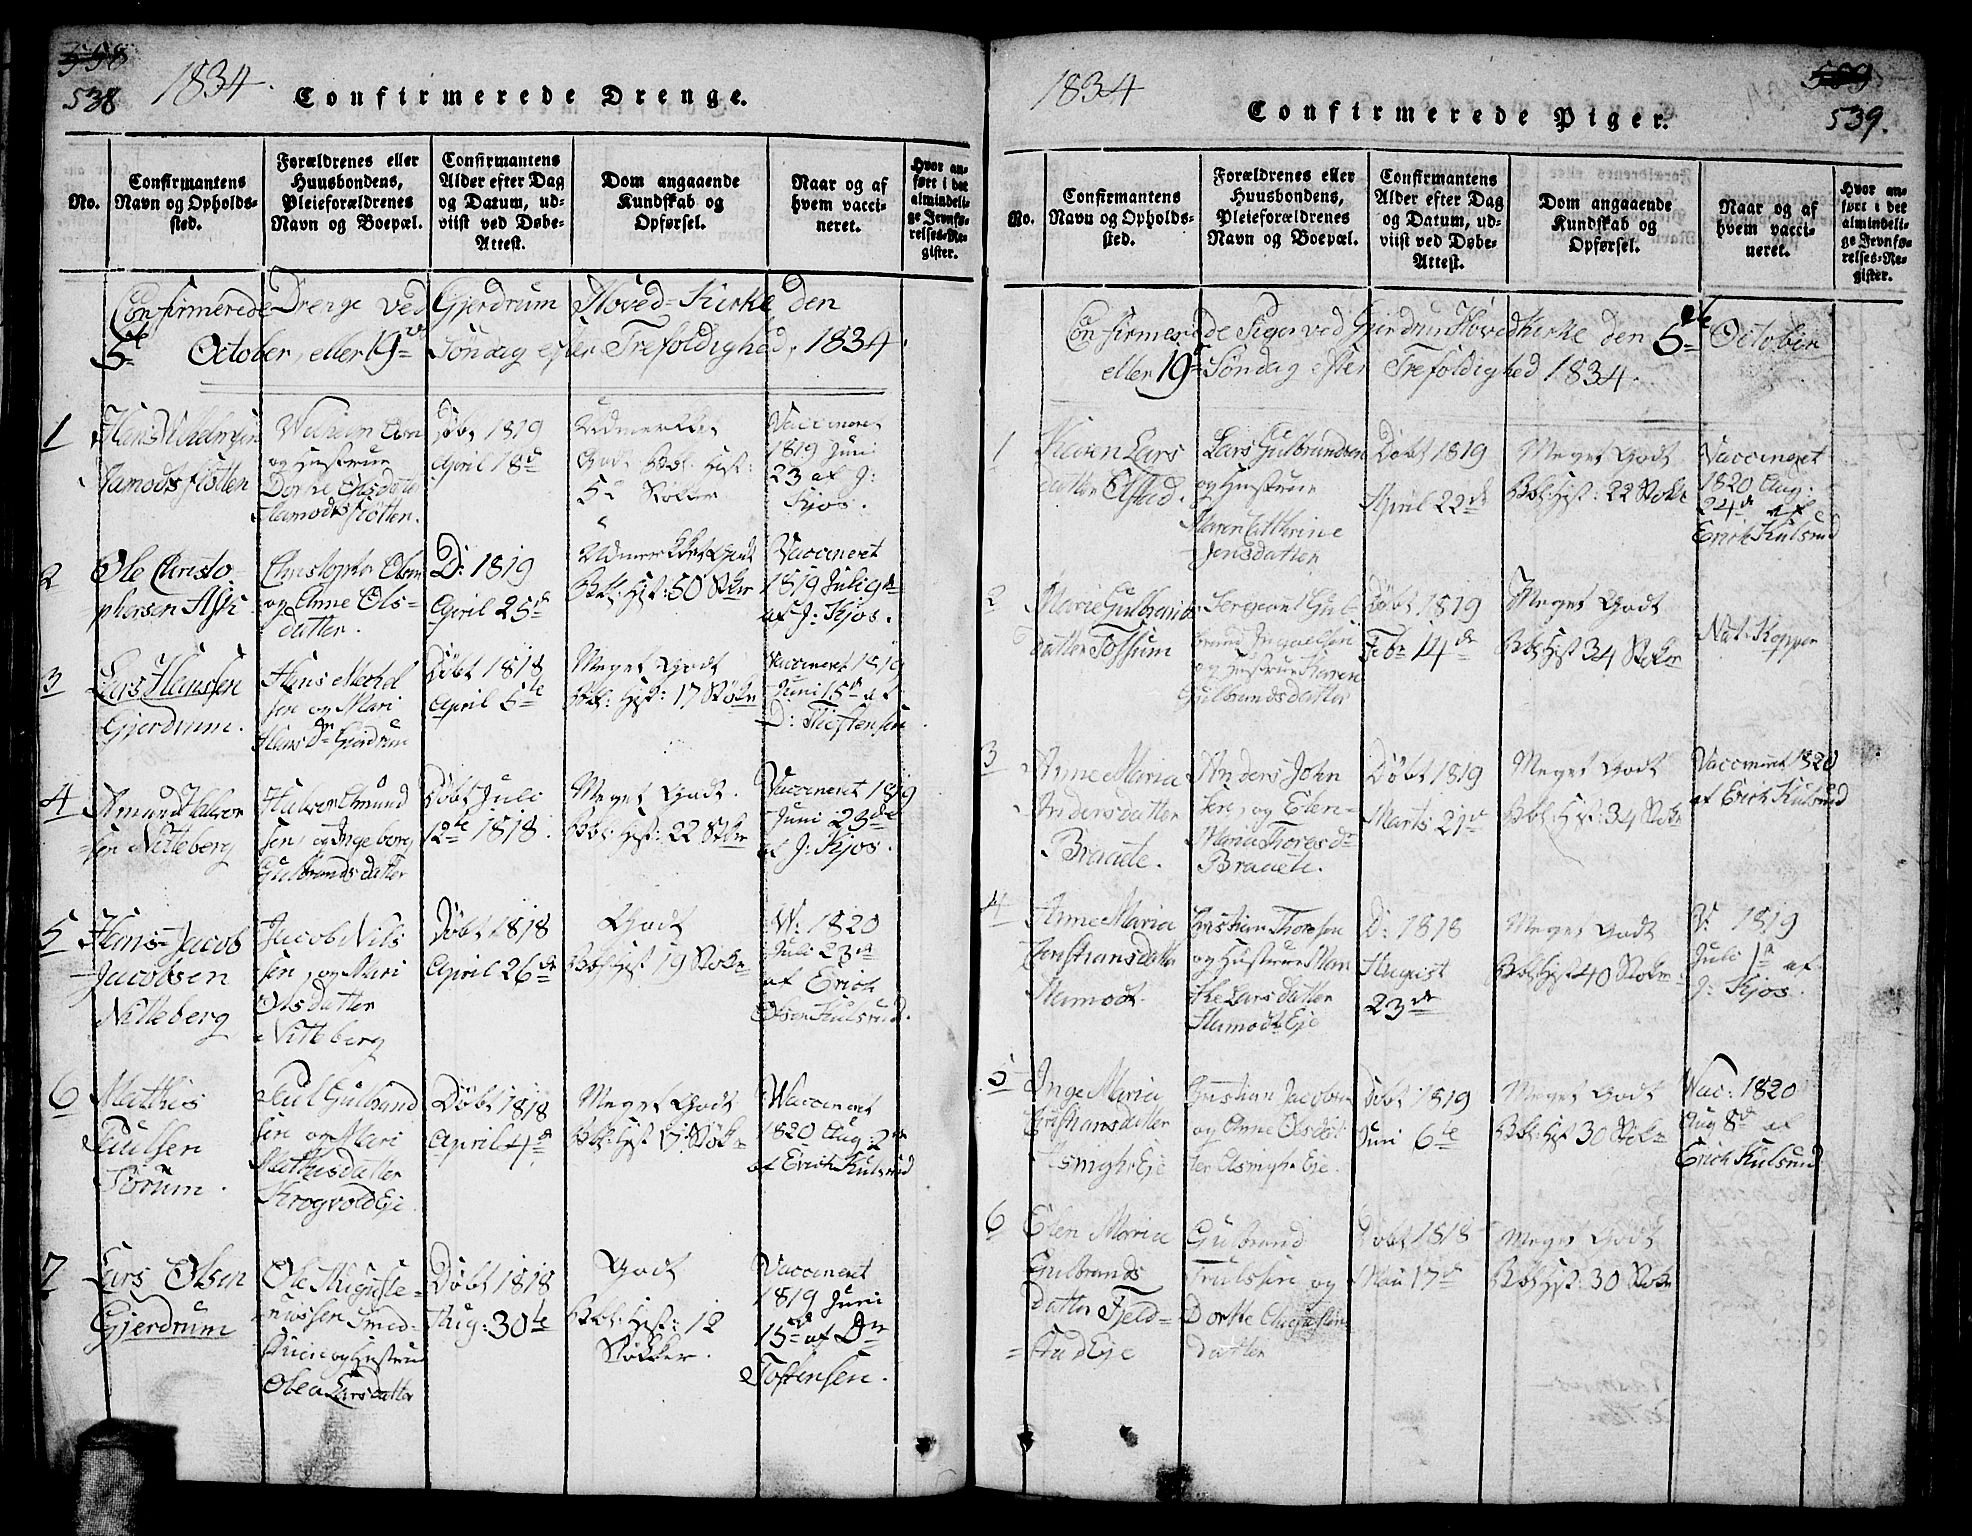 538
538
1834.
Confirmerede Drenge.
No.
Confirmantens
Navn og Opholds-
sted.
Forældrenes eller
Huusbondens,
Pleieforældrenes
Navn og Boepæl.
Confirmantens
Alder efter Dag
og Datum, ud-
viist ved Døbe-
Attest.
Dom angaaende
Kundskab og
Opførsel.
Naar og af
hvem vacci-
neret.
Hvor an-
ført i det
almindeli-
ge Jevnfø-
relses-Re-
gister.
Confirmerede Drenge ved Gjerdrum Hoved-Kirke den
5te October, eller 19de Søndag efter Trefoldighed, 1834.
1
Hans Vilhelmsen
Hamodtsflotten
Wilhelm Olsen
og Hustrue
Dorthe Olsdatter
Hamodtsflotten.
Døbt 1819
April 18de
Udmerket
Godt Bbl: Hist:
52 Støkker
Vaccineret
1819 Juni
23 af J:
Kjos.
2
Ole Christo-
phersen Ask
Christopher Olsen
og Anne Ols-
datter.
D: 1819
April 25de
Udmerkket Godt
Bbl: Hist: 50 Støkr
Vaccineret
1819 Juli 9de
af J: Kjos.
3
Lars Hanssen
Gjerdrum.
Hans Michel
sen og Mari
Hans Dr Gjerdrum
Døbt 1818
April 5te
Meget Godt
Bbl: Hist: 17 Støkr
Vaccineret 1819
Juni 15de af
D: Thoftensen
4
Amund Halvor
sen Nitteberg
Halvor Amund
sen, og Ingeborg
Gulbrandsdatter
Døbt Juli
12te 1818.
Meget Godt.
Bbl: Hist: 22 Støkr
Vaccineret 1819
Juni 23de
af J: Kjos.
5
Hans Jacob
Jacobsen
Nitteberg
Jacob Nils
sen, og Mari
Olsdatter
Nitteberg
Døbt 1818
April 26de
Godt
Bbl: Hist 19 Støkr
W: 1820
Juli 23de
af Erich
Olsen Kulsrud.
6
Mathis
Paulsen
Sørum.
Paul Gulbrand
sen og Mari
Mathisdatter
Krogvold Eje
Døbt 1818
April 4de
Meget Godt
Bbl: Hist Støkr
Vaccineret
1820 Aug: 2de
af Erich Kulsrud
7
Lars Olsen
Gjerdrum
Ole Auguste-
nussen Smed-
og Hustrue
Olea Larsdatter
Døbt 1818
Aug: 30te
Godt
Bbl: Hist: 12
Støkker.
Vaccineret
1819 Juni
15de af Dr
Toftensen.
1834
Confirmerede Piger.
509
539.
No.
Confirmantens
Navn og Opholds-
sted.
Forældrenes eller
Huusbondens,
Pleieforældrenes
Navn og Boepæl.
Confirmantens
Alder efter Dag
og Datum, ud-
viist ved Døbe-
Attest.
Dom angaaende
Kundskab og
Opførsel.
Naar og af
hvem vacci-
neret.
Hvor an-
ført i det
almindeli-
ge Jevnfø-
relses-Re-
gister.
Confirmerede Piger ved Gjerdrum Hovedkirke den 5te October
eller 19de Søndag efter Trefoldighed 1834.
1
Karen Lars
datter Elstad.
Lars Gulbrandsen
og Hustrue
Maren Cathrine
Jensdatter
Døbt 1819
April 22de
Meget Godt
Bbl: Hist: 22 Støkr
Vaccineret
1820 Aug.
24de af
Erich Kulsrud
2
Marie Gulbrands
datter Fossum
Sergeant Gul
brand Ingvaldsen
og Hustrue Karen
Gulbrandsdatter
Døbt 1819
Febr 14de
Meget Godt
Bbl: Hist 34 Støkr
Nat. Kopper
3
Anne Maria
Andersdatter
Braaete.
Anders John
sen, og Elen-
Maria Thoresdr
Braaete.
Døbt 1819
Marts 21de
Meget Godt
Bbl: Hist: 34 Støkr
Vaccineret 1820
af Erich Kulsrud
4
Anne Maria
Christiansdatter
Hamodt.
Christian Thoresen
og Hustrue Mari
the Larsdatter
Hamodt Eje
D: 1818
August
23de
Meget Godt
Bbl: Hist 40 Støkr
V: 1819
Juli 1te af
J: Kjos.
5
Inge Maria
Christiansdatter
Christian Jacobsen
og Anne Olsdat
ter
Døbt 1819
Juni 6te
Meget Godt
Bbl: Hist 30 Støkr
Vac: 1820
Aug 8de af
Erich Kulsrud
6
Elen Maria
Gulbrands
datter Fjeld-
stad Eje
Gulbrand
Trulssen og
Dorthe Augustin
datter
Døbt 1818
Mai 17de
Meget Godt
Bbl: Hist: 30 Støkr